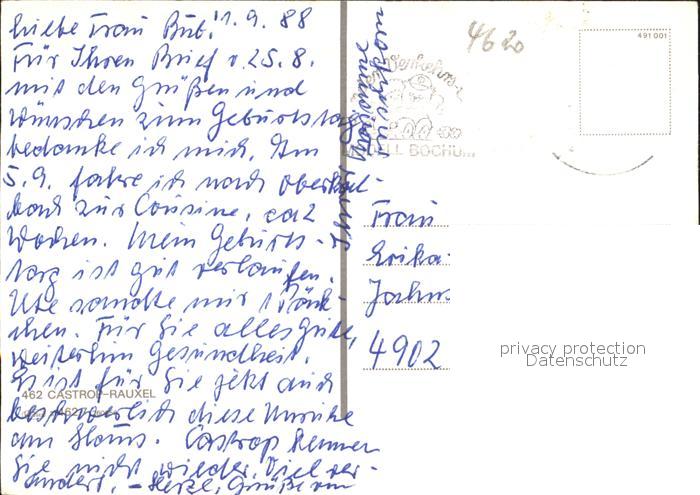 Liebe Frau Bub. 1.9.88
Für Ihren Brief v. 25.8.
mit den Grüßen und
Wünschen zum Geburtstag
bedanke ich mich. Am
5.9. fahre ich nach
zur Cousine, ca 2
Wochen. Mein Geburts-
tag ist gut verlaufen.
Ute sandte mir 1 Päck-
chen. Für Sie alles Gute,
weiterhin Gesundheit.
Es ist für Sie jetzt auch
beschwerlich diese Unruhe
am Haus. Castrop kennen
Sie nicht wieder. Viel ver-
ändert. – Herzl. Grüße von
Ihrer Marianne
462 CASTROP-RAUXEL
4620
BOCHUM
491 001
Frau
Erika
Jahn
4902
privacy protection
Datenschutz